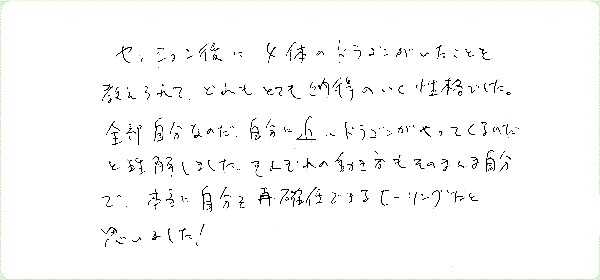 セッション後に4体のドラゴンがいたことを
教えられて、どれもとても納得のいく性格でした。
全部自分なのだ、自分に近いドラゴンがやってくるのだ
と理解しました。それぞれの動き方もそのまんま自分
で、本当に自分を再確認できるヒーリングだと
思いました！